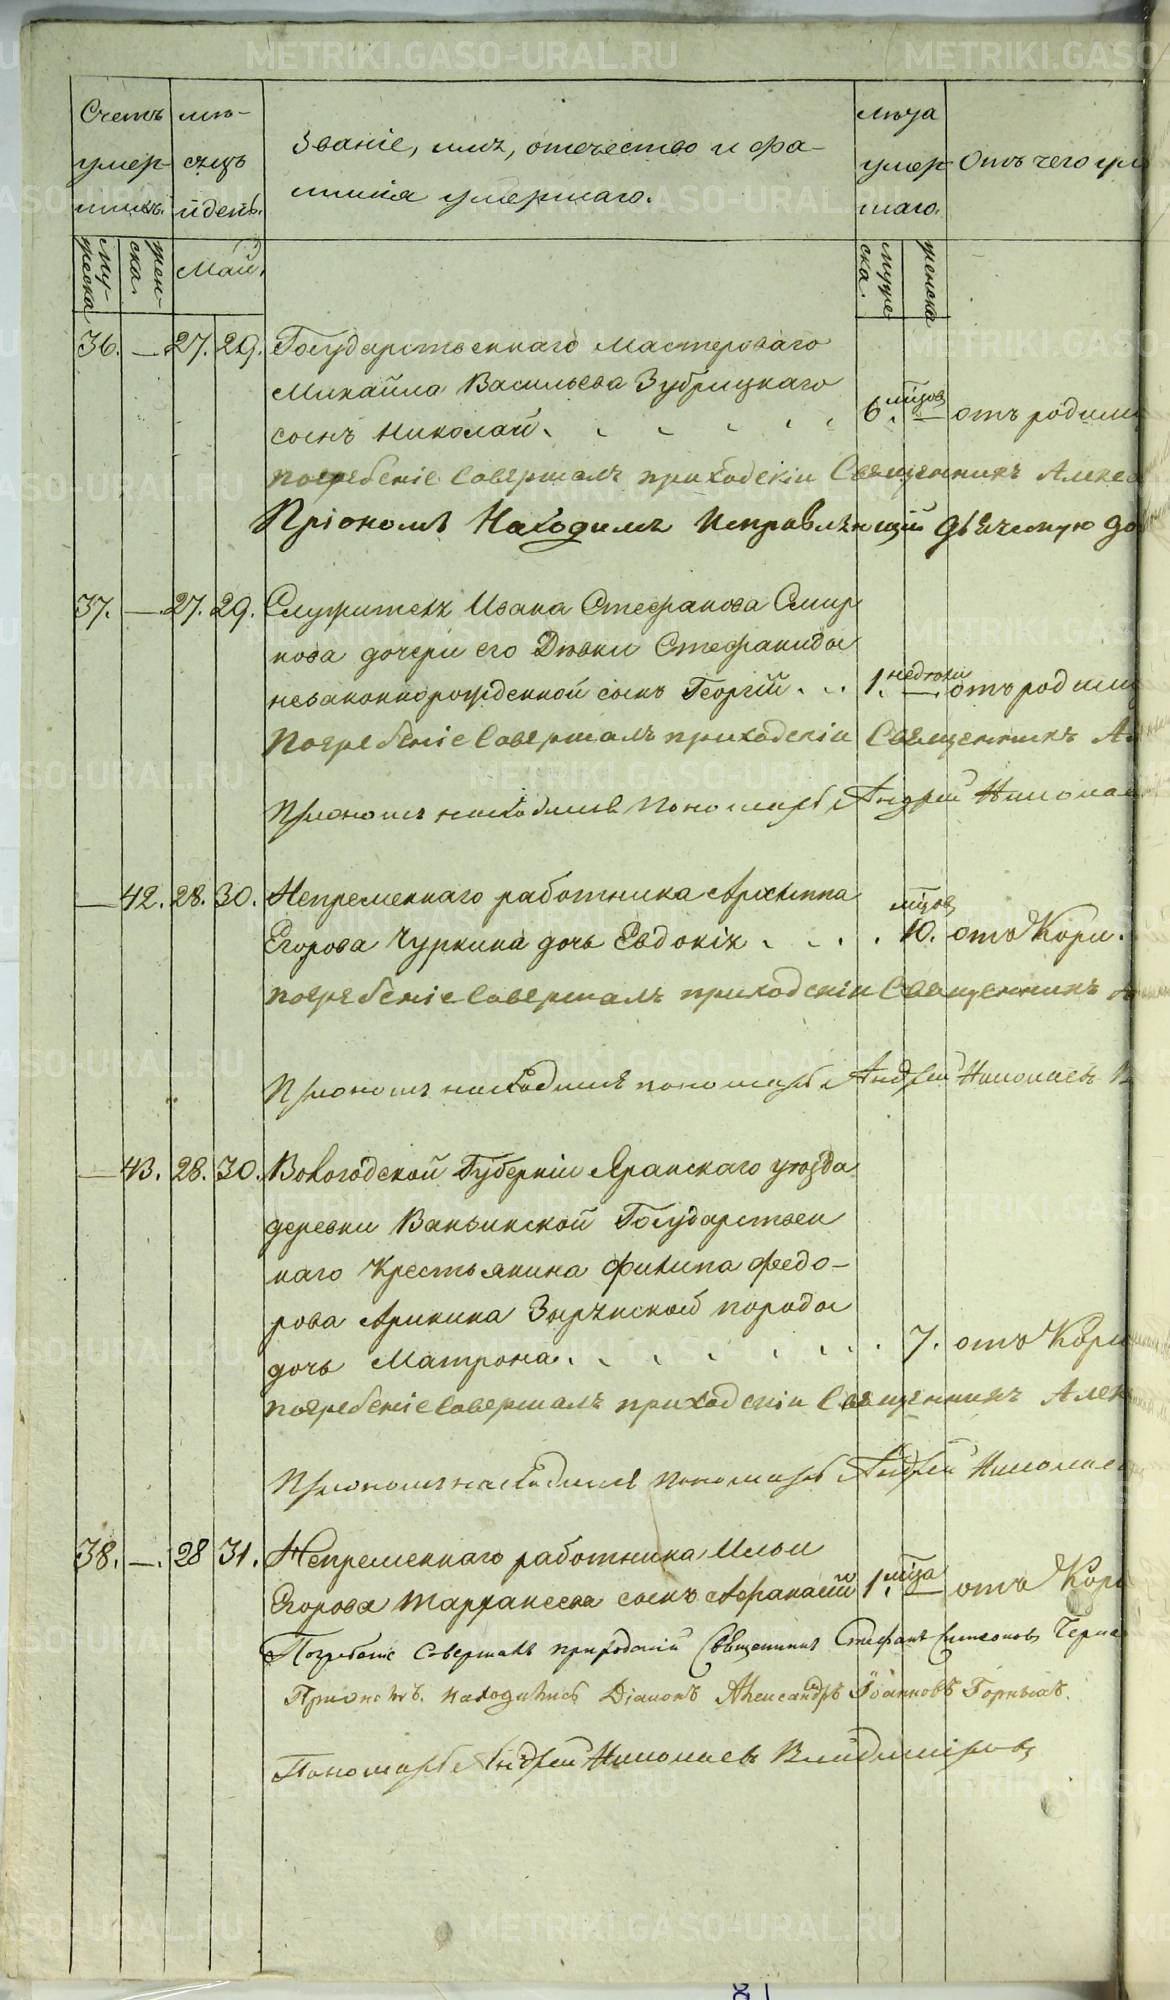 METRIKI.GASO-URAL.RU
Счетъ умер- шихъ.
мѣ- сяцъ и день.
Званіе, имя, отечество и фа-
милія умершаго.
лѣта умер- шаго.
Отъ чего ум
му- жеска
жен- ска.
Май.
муже ска.
женска
36. — 27. 29. Государственнаго мастероваго
Михайла Васильева Зубрицкаго
сынъ Николай. 6. мѣсцов — отъ родими
погребеніе Совершалъ приходскіи Священникъ Алекса
Пріономъ Находился Исправляющій Дьяческую до
37. — 27. 29. Служителя Ивана Стефанова Смир
нова дочери его Дѣвки Стефаниды
незаконнорожденной сынъ Георгій. 1. недѣли — отъ родими
Погребеніе Совершалъ приходскіи Священникъ Ал
Приономъ находился Пономарь Андрей Николае
— 42. 28. 30. Непременнаго работника Архиппа
Егорова Чуркина дочь Евдокія 10. мѣсцов отъ Кори.
погребеніе Совершалъ приходскіи Священникъ
Приономъ находился пономарь Андрей Николаевъ В
— 43. 28. 30. Вологодской Губерніи Яранскаго уѣзда
деревни Ваньинской Государствен
наго Крестьянина Филипа Федо-
рова Арикина Зырянской породы
дочь Матрона. 7. отъ Кори
погребеніе Совершалъ приходскіи Священникъ Алек
Приономъ находился Пономарь Андрей Николае
38. — 28 31. Непременнаго работника Ильи
Егорова сынъ Афанасій 1. мѣсца — отъ Кори
Погребеніе Совершалъ приходскій Священникъ Стефанъ Симеоновъ Черна
Приономъ. находились Діаконъ Александръ Іоанновъ
Пономарь Андрей Николаевъ Владимировъ
81